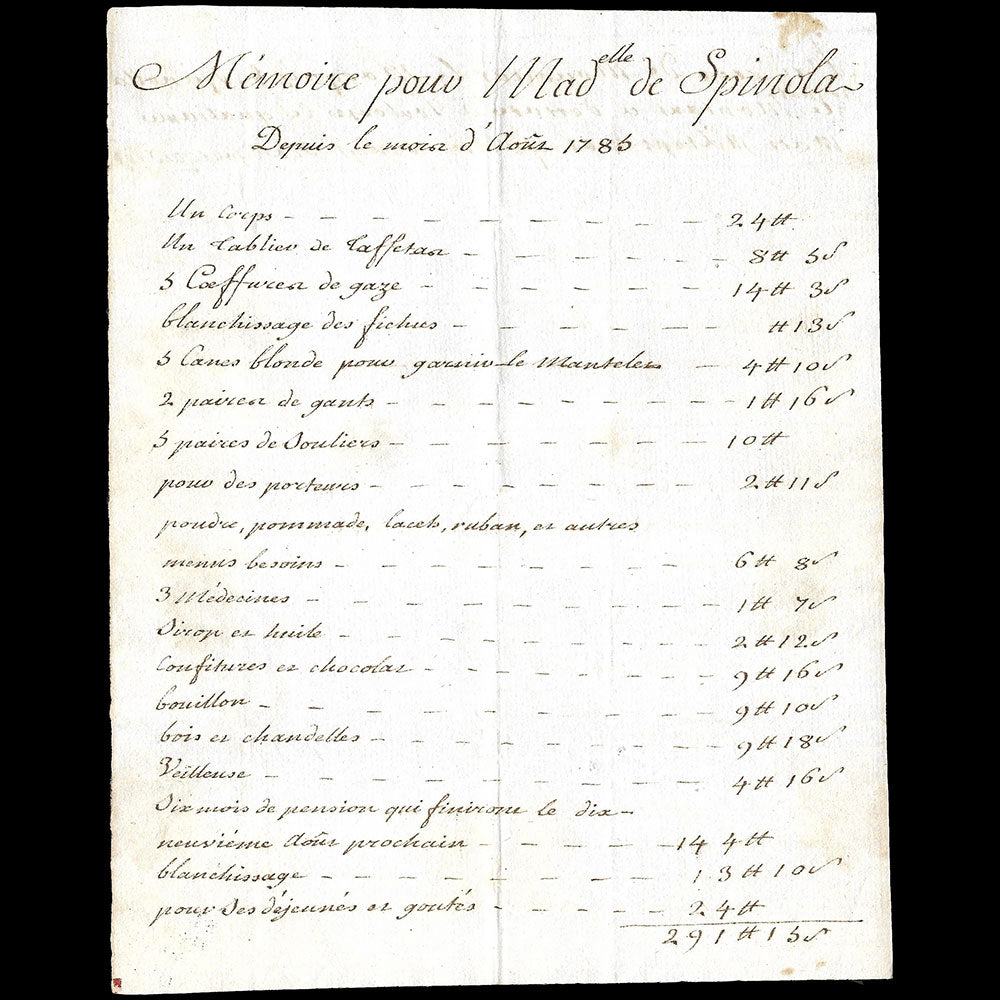 Mémoire pour Mad^elle de Spinola
Depuis le mois d'Août 1785
Un Corps - - - - - - - - - - 24 ₶
Un Tablier de Taffetas - - - - - - 8 ₶ 5 s
5 Coeffures de gaze - - - - - - - 14 ₶ 3 s
blanchissage des fichus - - - - - - ₶ 13 s
5 Canes blonde pour garnir le Mantelet - 4 ₶ 10 s
2 paires de gants - - - - - - - - 1 ₶ 16 s
5 paires de Souliers - - - - - - - 10 ₶
pour des porteurs - - - - - - - - 2 ₶ 11 s
poudre, pommade, lacets, ruban, et autres
menus besoins - - - - - - - - - 6 ₶ 8 s
3 Médecines - - - - - - - - - - 1 ₶ 7 s
Sirop et huile - - - - - - - - - 2 ₶ 12 s
Confitures et chocolat - - - - - - - 9 ₶ 16 s
bouillon - - - - - - - - - - 9 ₶ 10 s
bois et chandelles - - - - - - - - 9 ₶ 18 s
Veilleuse - - - - - - - - - - 4 ₶ 16 s
Six mois de pension qui finiront le dix-
neuviéme Août prochain - - - - - 144 ₶
blanchissage - - - - - - - - 13 ₶ 10 s
pour Ses déjeunés et goutés - - - - - 24 ₶
291 ₶ 15 s